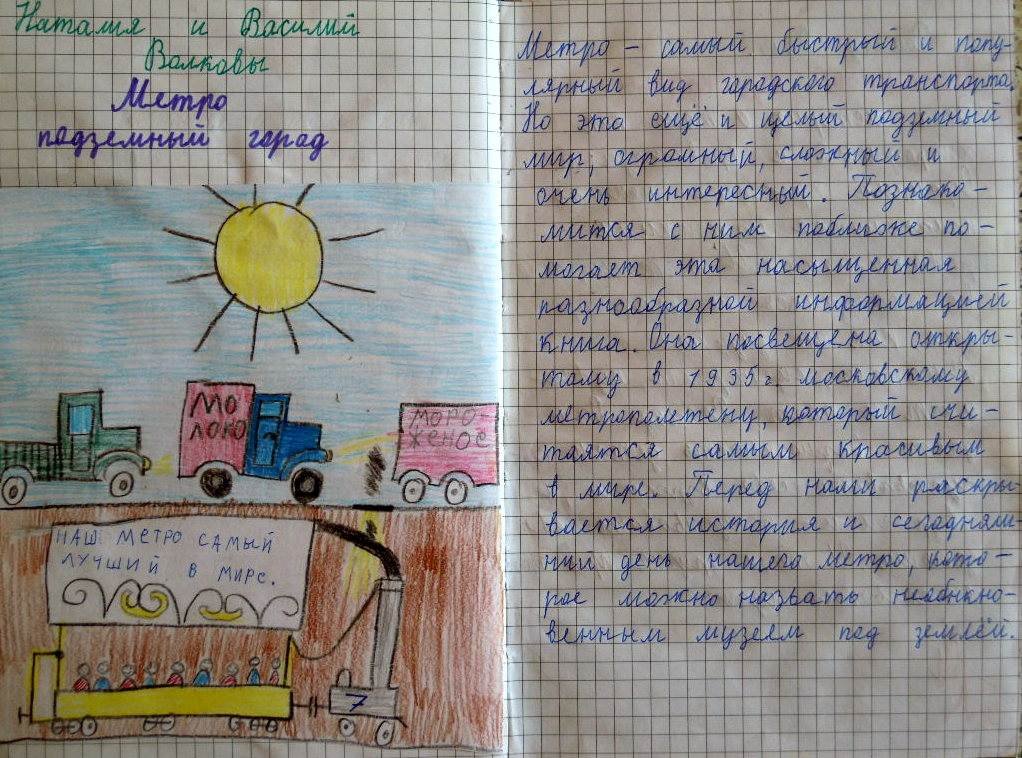 Наталия и Василий
Волковы
Метро
подземный город
МО
ЛОКО
МОРО
ЖЕНОЕ
НАШ МЕТРО САМЫЙ
ЛУЧШИЙ В МИРЕ.
7
Метро – самый быстрый и попу-
лярный вид городского транспорта.
Но это ещё и целый подземный
мир, огромный, сложный и
очень интересный. Познако-
мится с ним поближе по-
могает эта насыщенная
разнообразной информацией
книга. Она посвещена откры-
тому в 1935 г. московскому
метрополетену, который счи-
таятся самым красивым
в мире. Перед нами раскры-
вается история и сегодняш-
ний день нашего метро, кото-
рое можно назвать необыкно-
венным музеям под землёй.